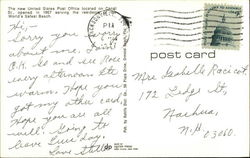 The new United States Post Office located on Canal
St., opened in 1967 serving the residents of the
World's Safest Beach
Hi,
Sorry you worry
about me. I am
O.K. Go and see Rose
every afternoon its
warm. Hope you
got my other card.
Hope you are all
well. Going to
leave Tuesday.
Love Stella
PM
post card
Mrs Isabelle Racicot
172 Ledge St,
Nashua,
N.H.
03060.